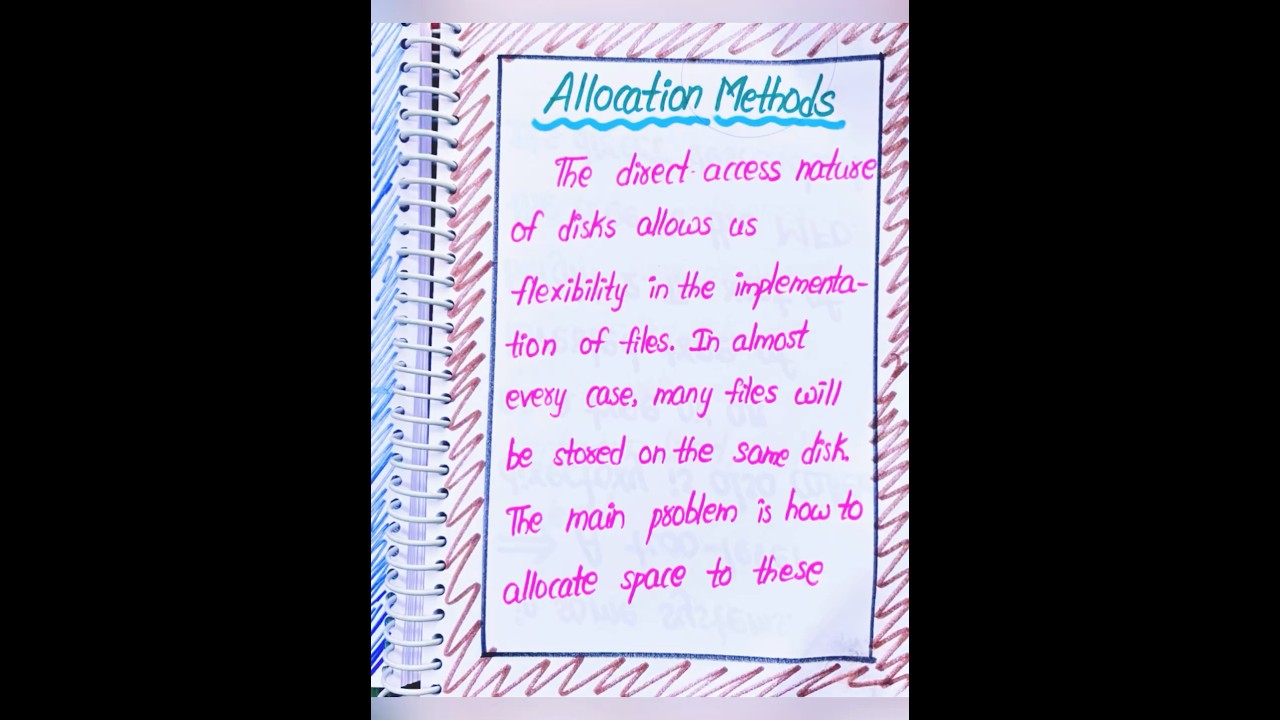 Allocation Methods
The direct-access nature
of disks allows us
flexibility in the implementa-
tion of files. In almost
every case, many files will
be stored on the same disk.
The main problem is how to
allocate space to these